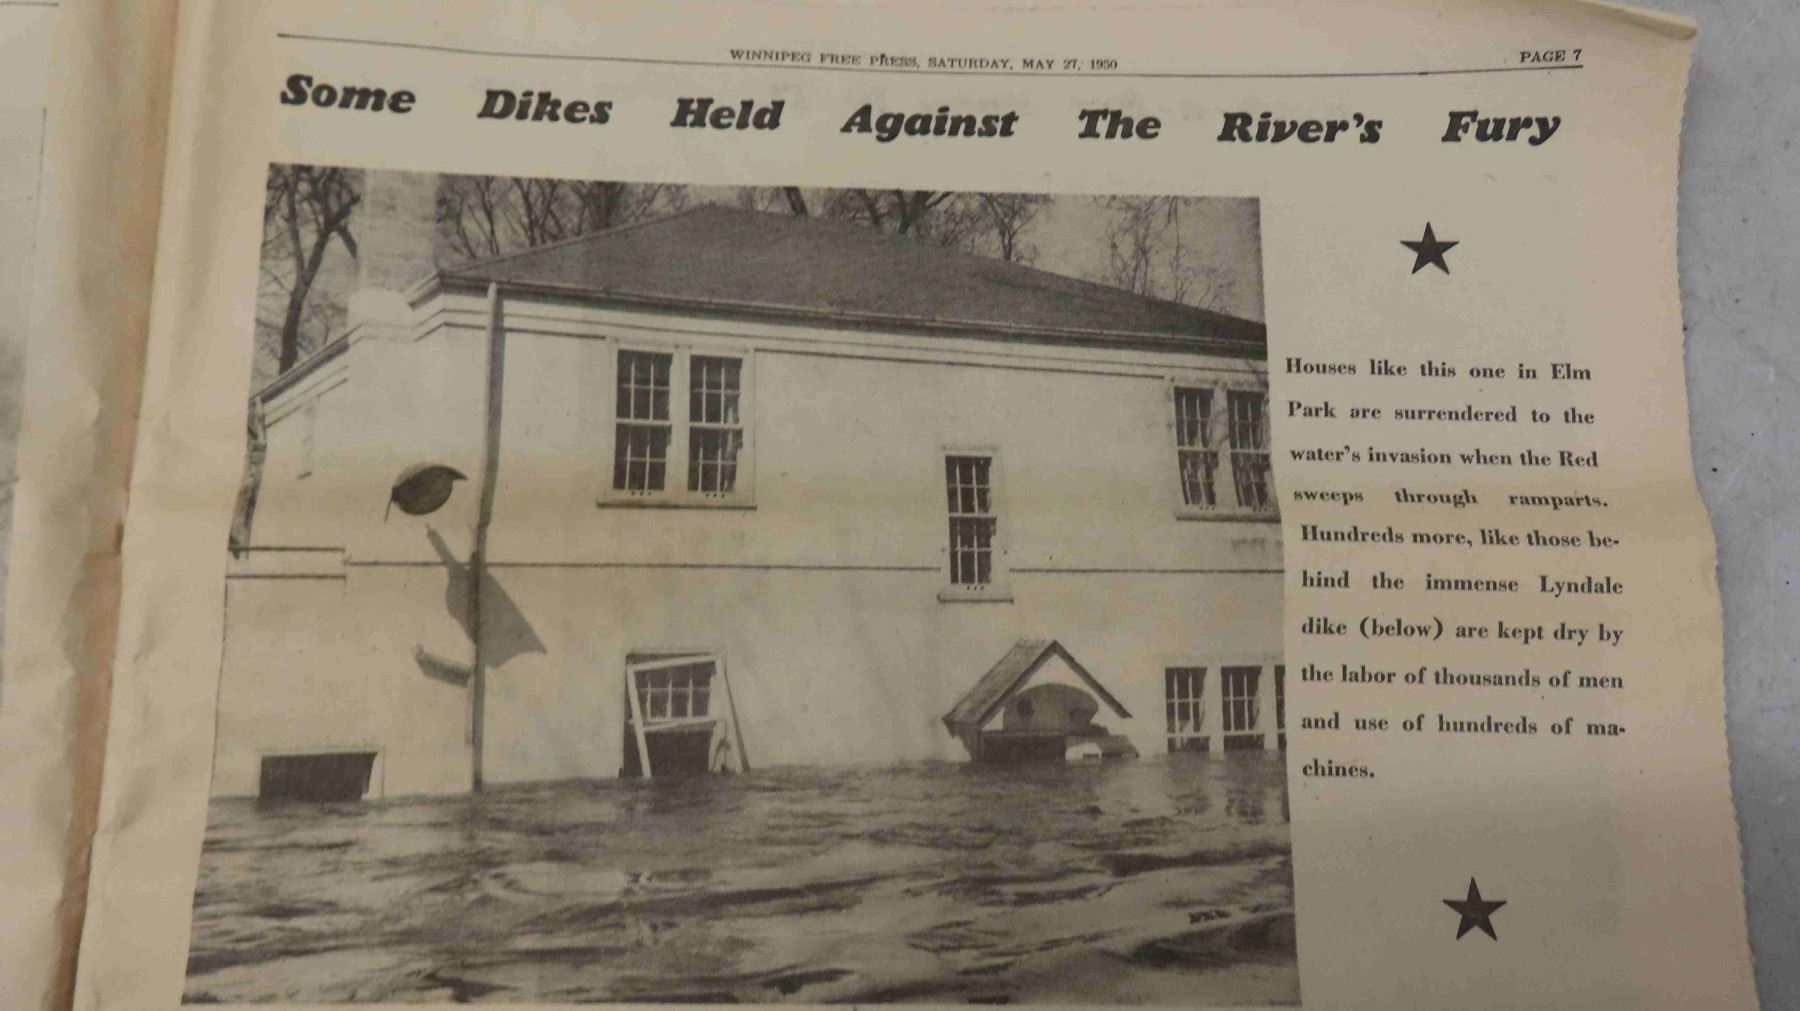 WINNIPEG FREE PRESS, SATURDAY, MAY 27, 1950
PAGE 7
Some Dikes Held Against The River's Fury
Houses like this one in Elm
Park are surrendered to the
water's invasion when the Red
sweeps through ramparts.
Hundreds more, like those be-
hind the immense Lyndale
dike (below) are kept dry by
the labor of thousands of men
and use of hundreds of ma-
chines.